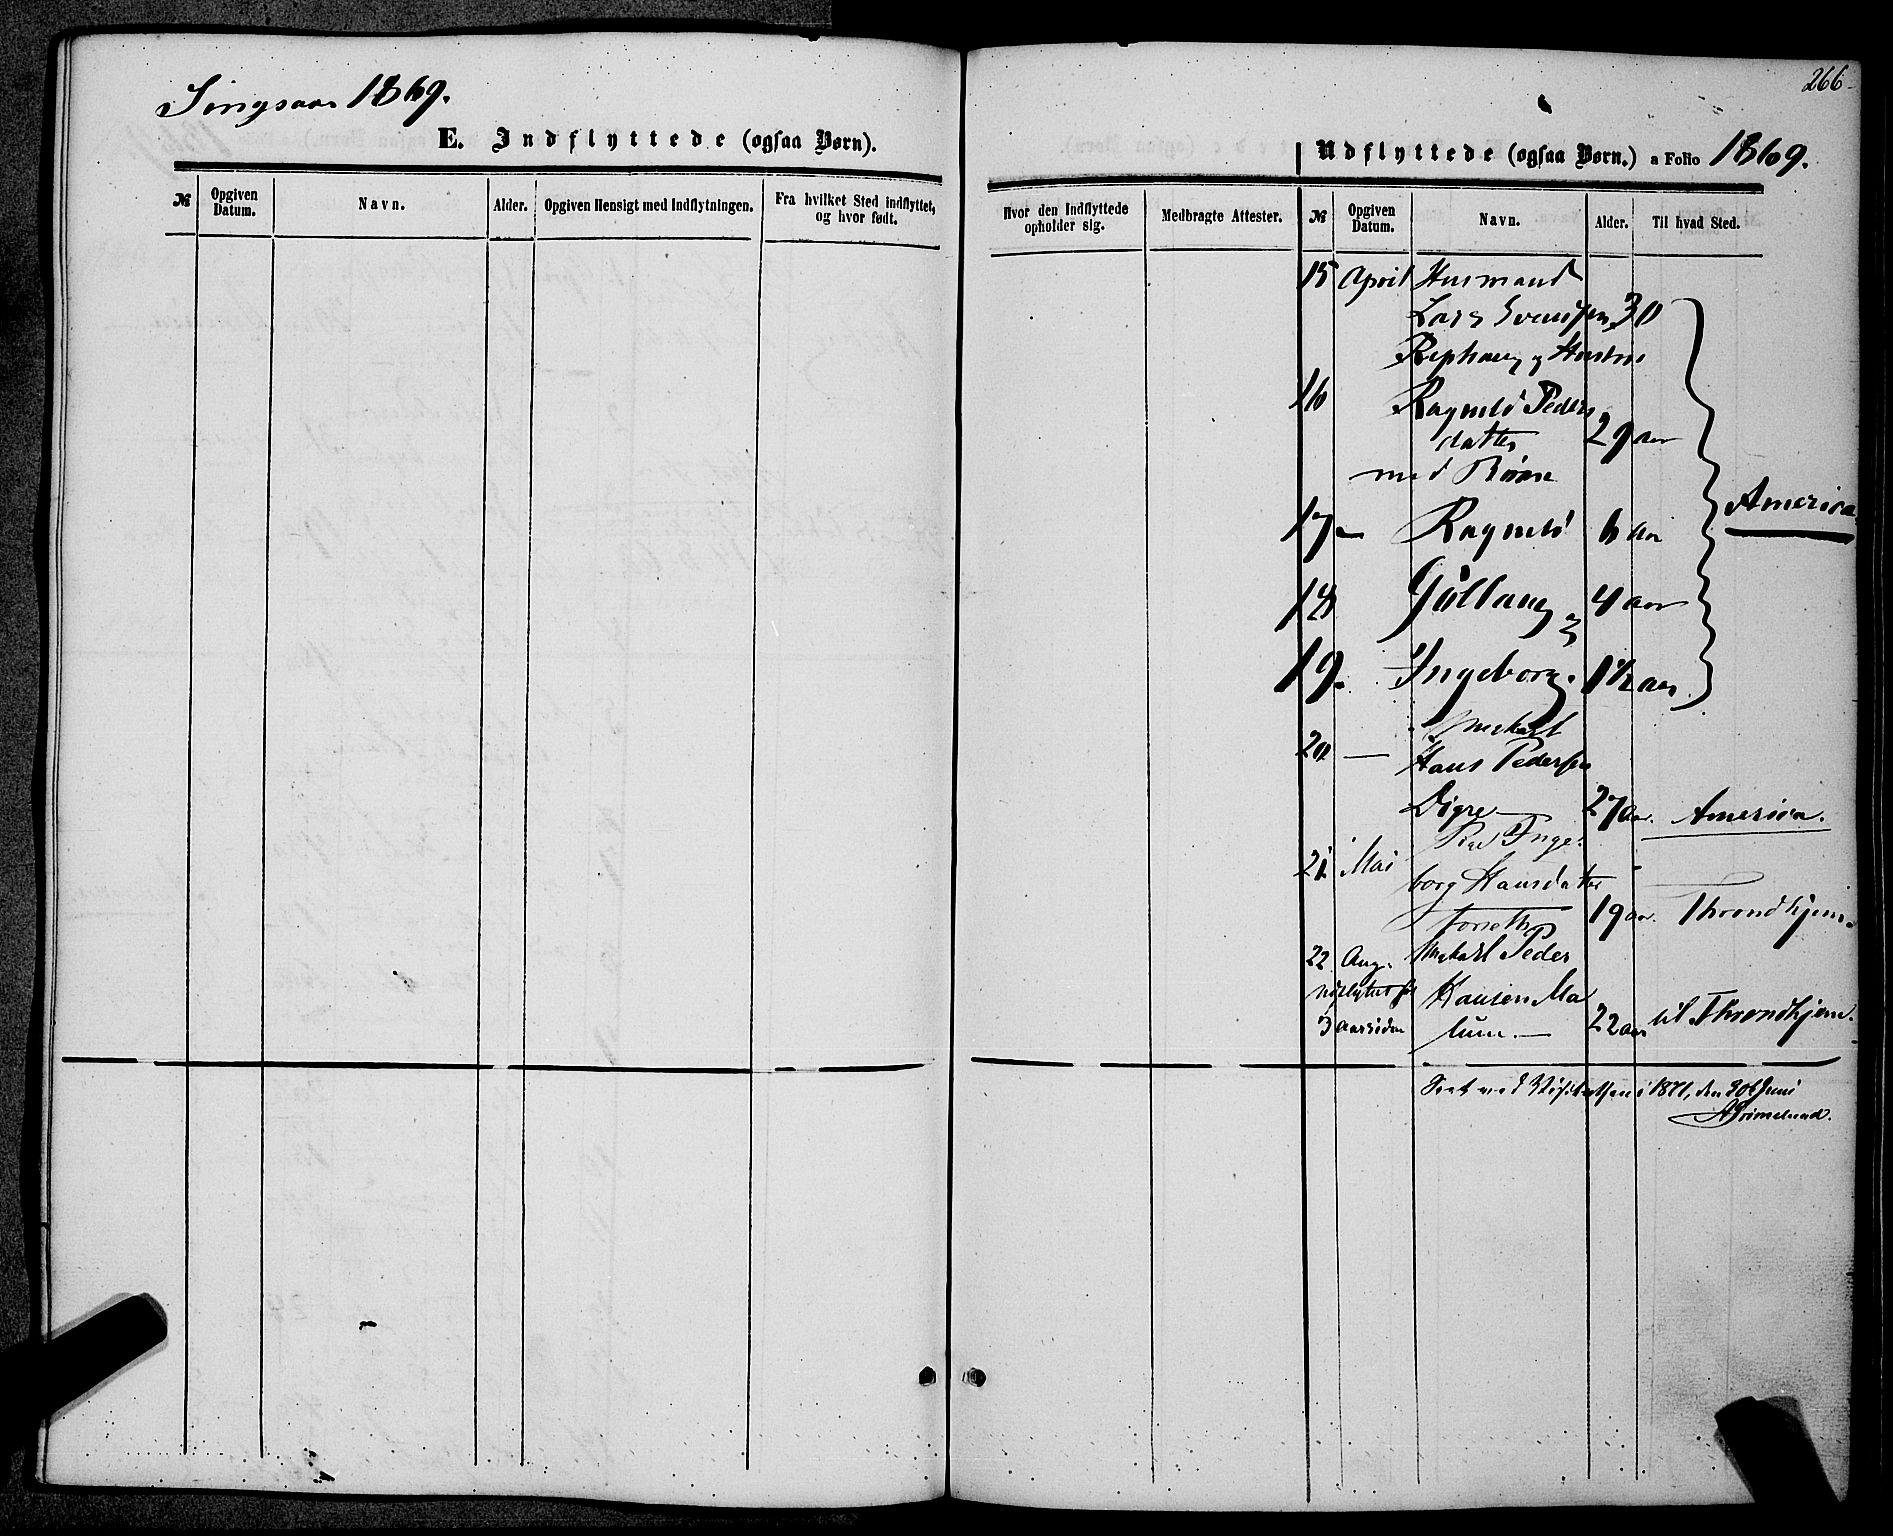 Singsaas 1869.
E. Indflyttede (ogsaa Børn).
№ Opgiven Datum. Navn. Alder. Opgiven Hensigt med Indflytningen. Fra hvilket Sted indflyttet, og hvor født.
266
Udflyttede (ogsaa Børn.) a Folio 1869.
Hvor den Indflyttede opholder sig. Medbragte Attester. № Opgiven Datum. Navn. Alder. Til hvad Sted.
15 April Husmand
Lars Svendsen 30
og Hustro
16 Ragnild Peders
datter 29 aar
med Børn
17 — Ragnild 6 aar
America
18 4 aar
19. Ingeborg. 1½ aar
20 —
Hans Pedersen
Digre 27 aar. America.
21. Mai Inge-
borg Hansdatter
Forseth 19 aar. Throndhjem.
22 Aug. Peder
Hansen Ma
3 aarsiden lum. — 22 aar til Throndhjem.
1871, den 30 Juni